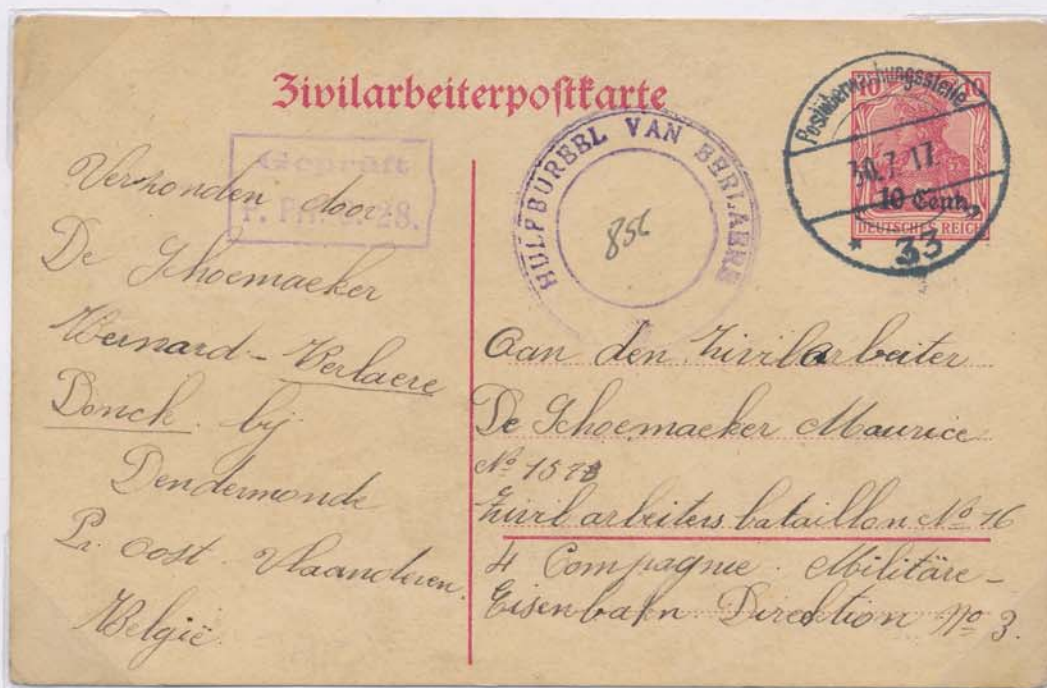 Zivilarbeiterpostkarte
Geprüft
28.
HULPBUREEL VAN BERLAERE
856
Postüberwachungsstelle
30.7.17
33
10 10
10 Cent.
DEUTSCHES REICH
Verzonden door
De Schoemaeker
Bernard - Berlaere
Donck. bij
Dendermonde
Pr. Oost. Vlaanderen.
België.
Aan den Zivilarbeiter
De Schoemaeker Maurice
Nº 1573
Zivilarbeiters bataillon Nº 16
4 Compagnie. Militäre-
Eisenbahn Direktion Nº 3.